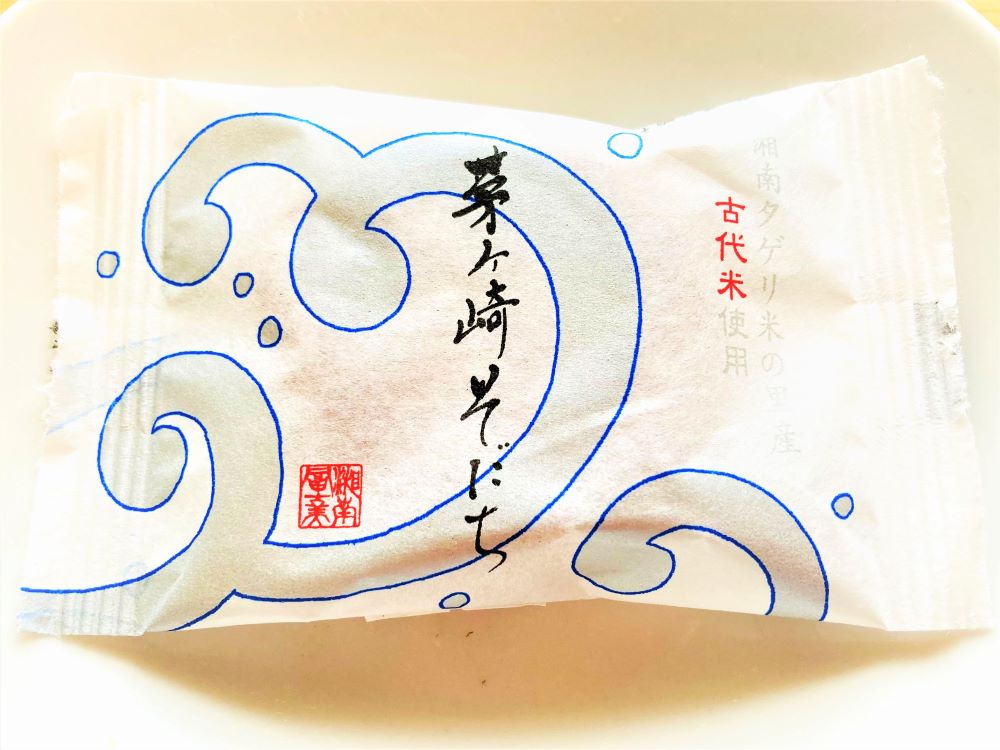 湘南タゲリ米の里産
古代米使用
茅ヶ崎そだち
湘南